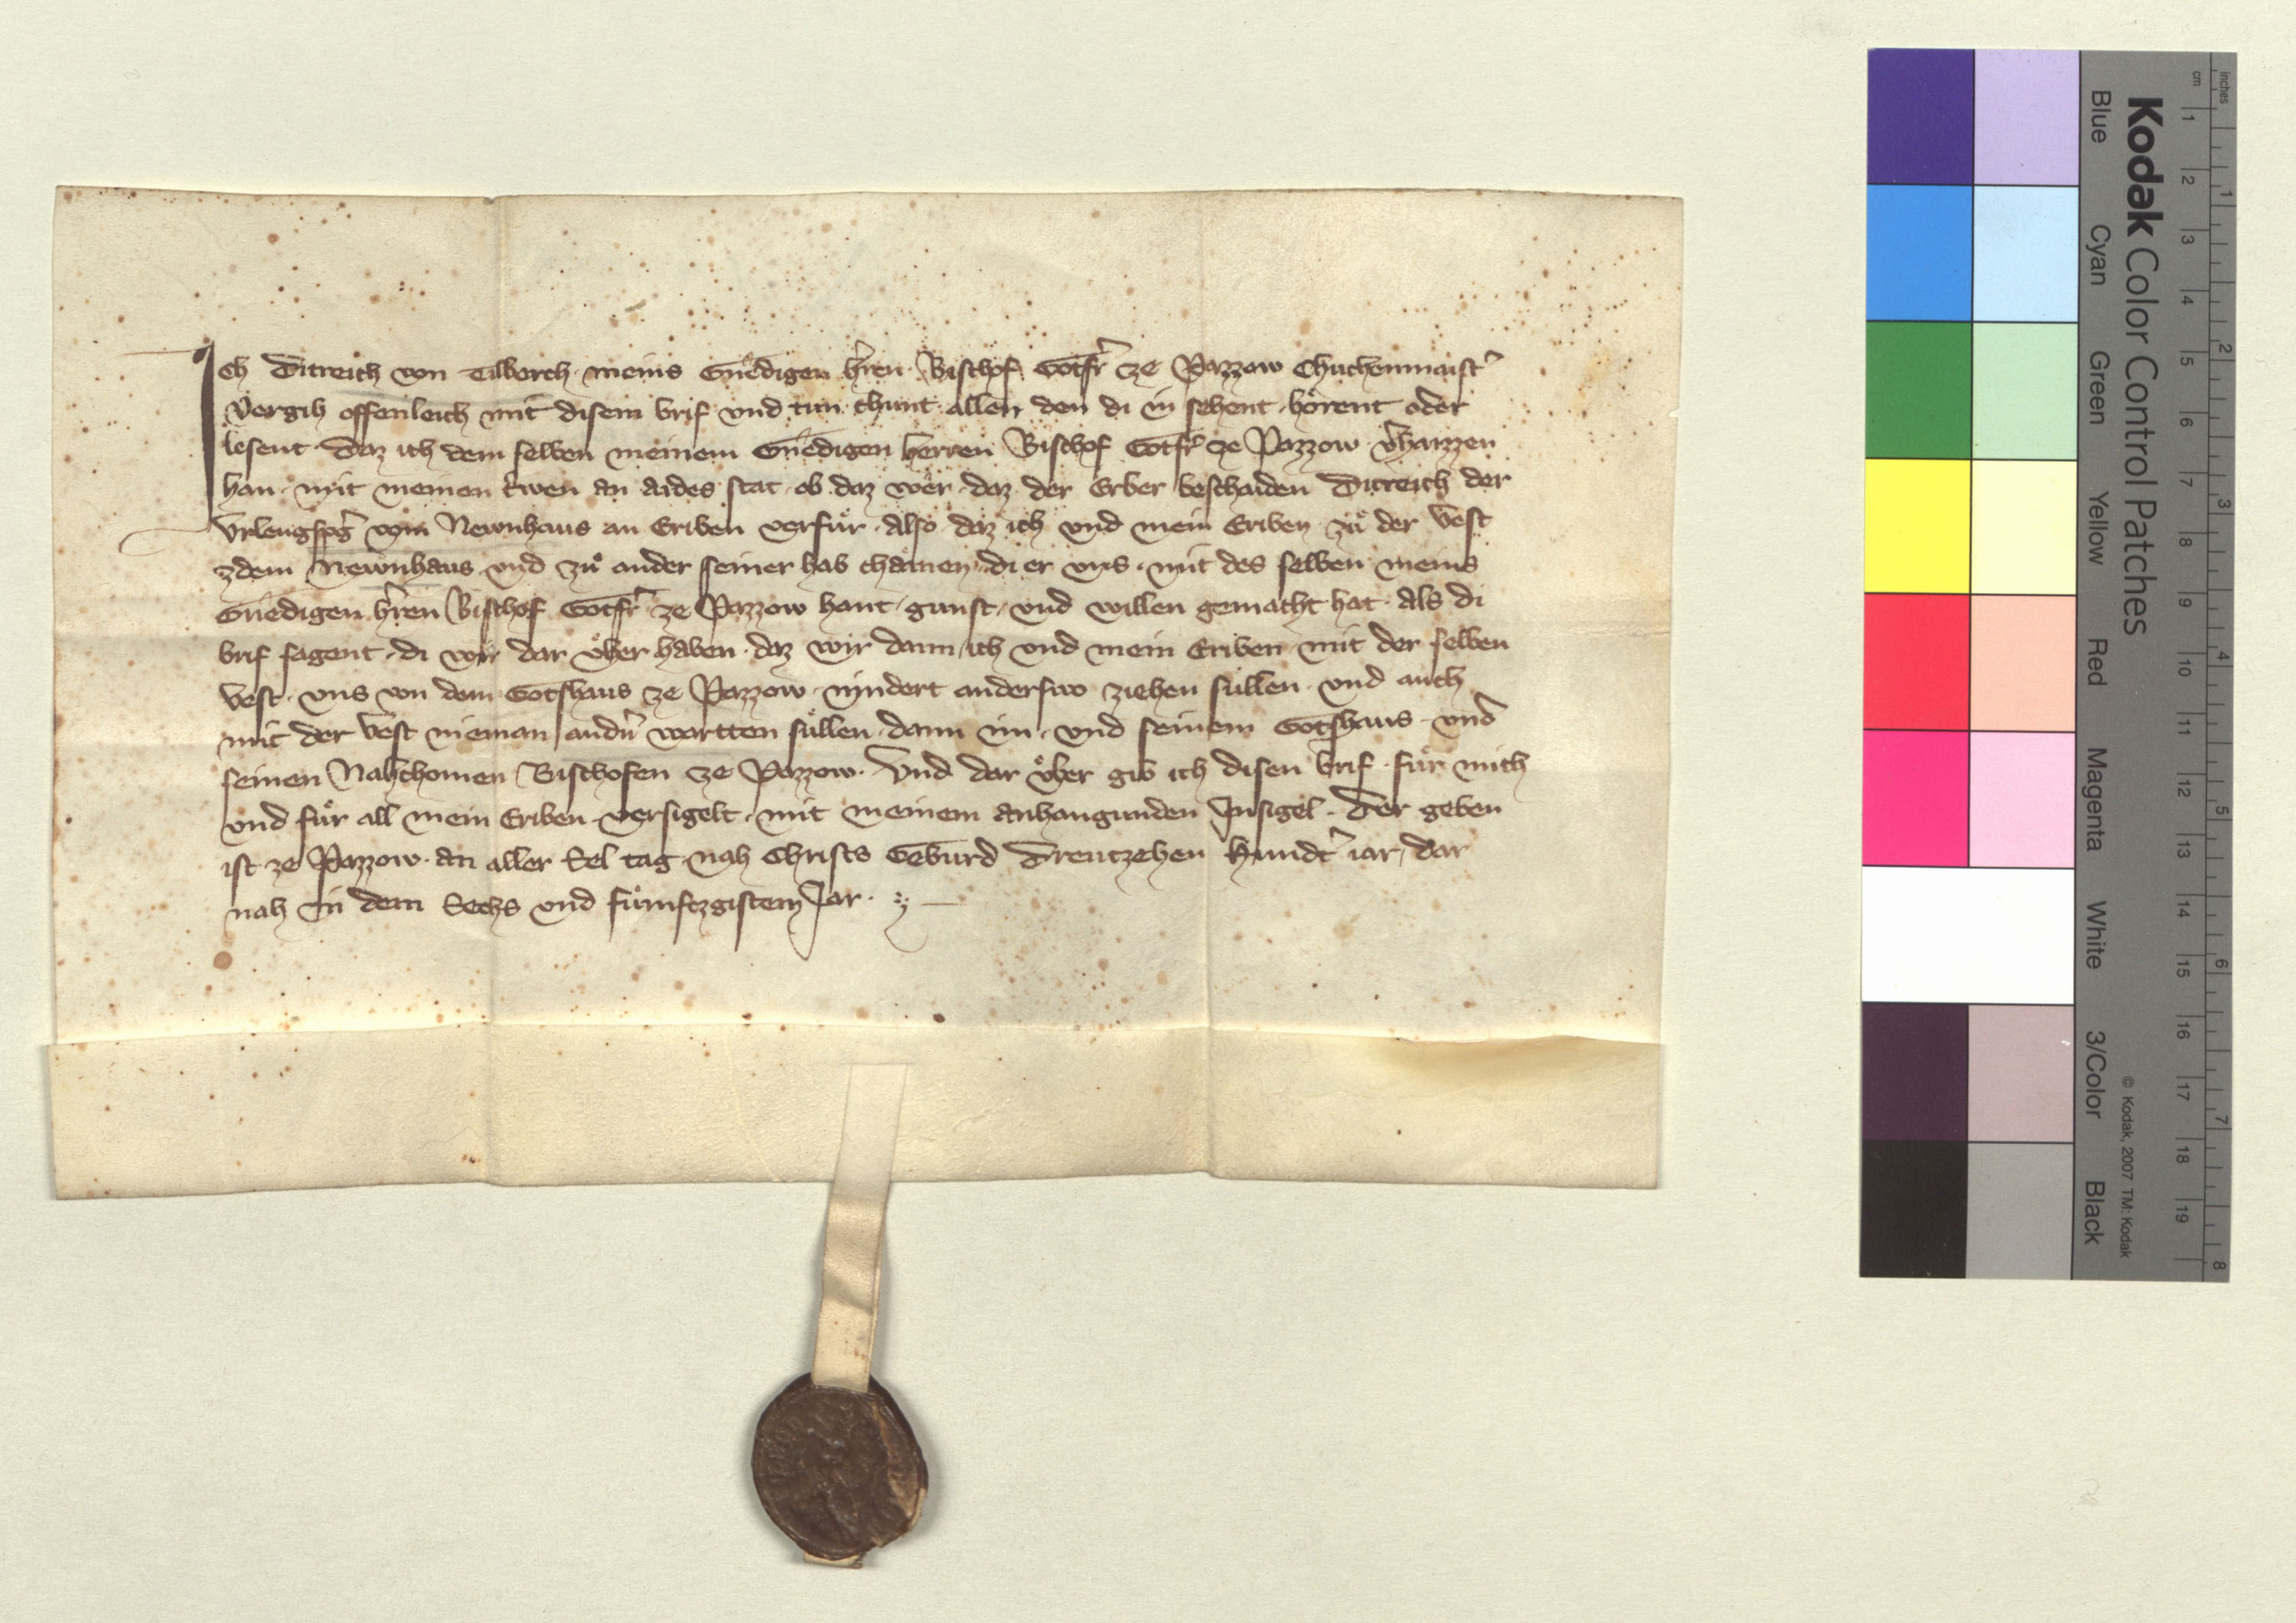 Ich Ditreich von Tilberch meins Gnedigen h̄ren Bischof Gotfr̄ ze Pazzow Chuchenmaist̄
Vergih offenleich mit disem brif und tun chunt allen den di in sehent hoͤrent oder
lesent daz ich dem selben meinem Gnedigen herren Bischof Gotfr̄ ze Pazzow v̄haizzen
han mit meinen tr̄wen an aides stat ob daz wer daz der Erber beschaiden Ditreich der
von Newnhaus an Eriben verfuͤr also daz ich und mein Eriben zuͦ der Vest
zdem Newnhaus und zuͦ ander seiner hab chaͤmen di er uns mit des selben meins
Gnedigen h̄ren Bischof Gotfr̄ ze Pazzow hant gunst und willen gemacht hat als di
brif sagent di wir dar uͤber haben daz wir dann ich und mein Eriben mit der selben
Vest uns von dem Gotshaus ze Pazzow nindert anderswo ziehen suͤllen und auch
mit der Vest nieman andn̄ wartten suͤllen dann im und seinem Gotshaus und
seinen Nahchomen Bischofen ze Pazzow. Und dar uͤber gib ich disen brif fuͤr mich
und fuͤr all mein Eriben versigelt mit meinem anhangunden Insigel. Der geben
ist ze Pazzow an aller Sel tag nah Christs Geburd Dreutzehen Hundt̄ iar dar
nah in dem Sechs und fuͤmftzgistem Jar.
Kodak Color Control Patches
Blue Cyan Green Yellow Red Magenta White 3/Color Black
© Kodak, 2007 TM: Kodak
inches 1 2 3 4 5 6 7 8
cm 1 2 3 4 5 6 7 8 9 10 11 12 13 14 15 16 17 18 19